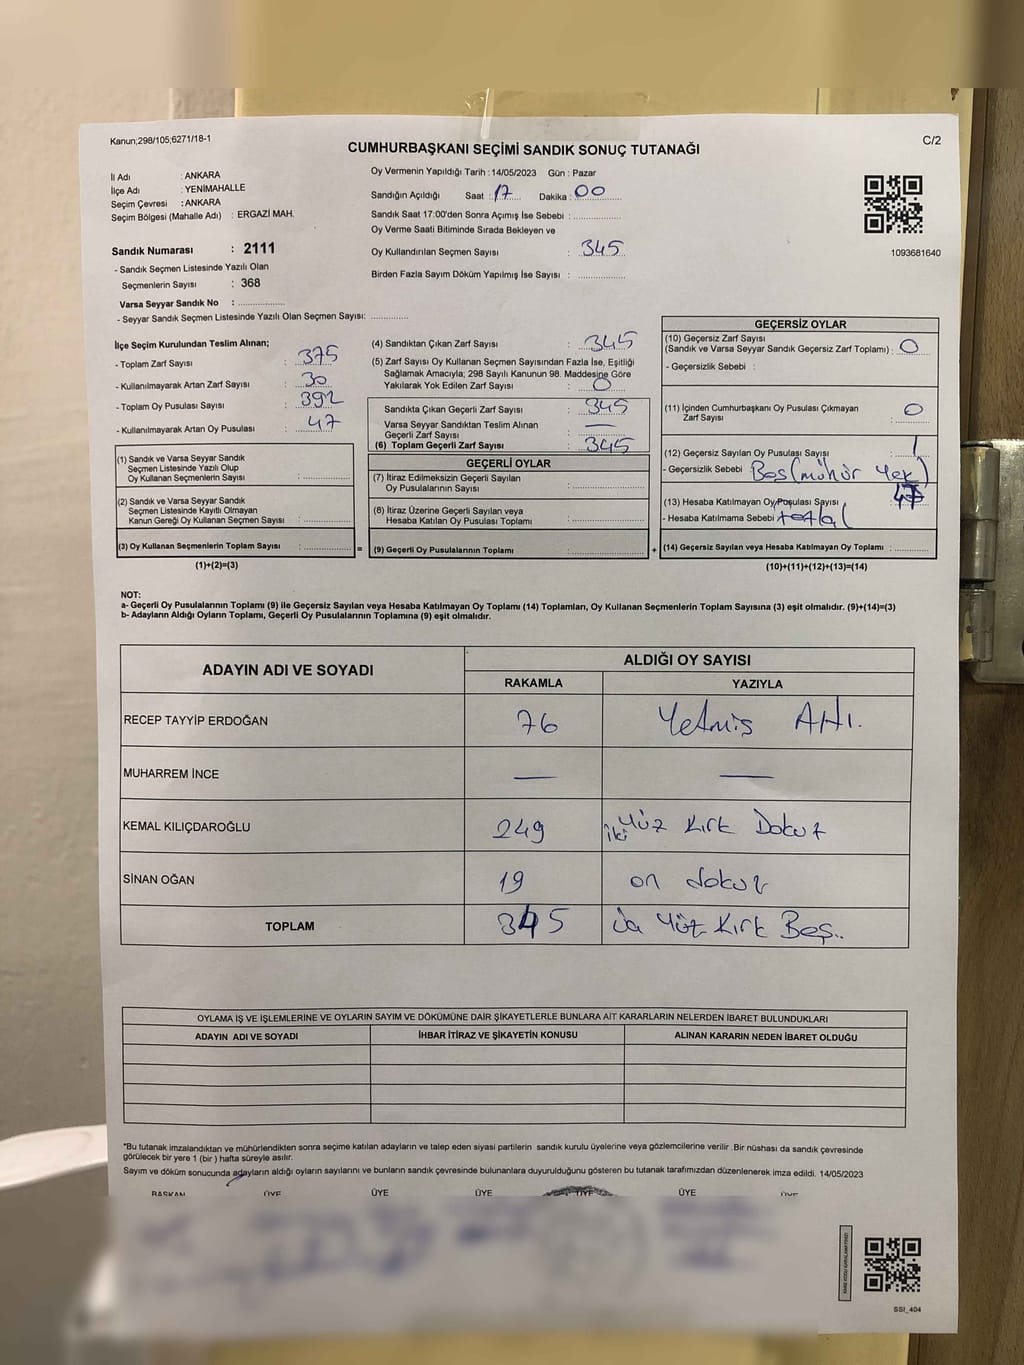 Kanun;298/105;6271/18-1
C/2
CUMHURBAŞKANI SEÇİMİ SANDIK SONUÇ TUTANAĞI
İl Adı : ANKARA
İlçe Adı : YENİMAHALLE
Seçim Çevresi : ANKARA
Seçim Bölgesi (Mahalle Adı) : ERGAZİ MAH.
Sandık Numarası : 2111
- Sandık Seçmen Listesinde Yazılı Olan
Seçmenlerin Sayısı : 368
Varsa Seyyar Sandık No : ..............
- Seyyar Sandık Seçmen Listesinde Yazılı Olan Seçmen Sayısı: ............
Oy Vermenin Yapıldığı Tarih : 14/05/2023 Gün : Pazar
Sandığın Açıldığı Saat : 17 Dakika : 00
Sandık Saat 17:00'den Sonra Açımış İse Sebebi : ..............
Oy Verme Saati Bitiminde Sırada Bekleyen ve
Oy Kullandırılan Seçmen Sayısı : 345
Birden Fazla Sayım Döküm Yapılmış İse Sayısı : ..............
1093681640
İlçe Seçim Kurulundan Teslim Alınan;
- Toplam Zarf Sayısı : 375
- Kullanılmayarak Artan Zarf Sayısı : 30
- Toplam Oy Pusulası Sayısı : 392
- Kullanılmayarak Artan Oy Pusulası : 47
(1) Sandık ve Varsa Seyyar Sandık
Seçmen Listesinde Yazılı Olup
Oy Kullanan Seçmenlerin Sayısı : ..............
(2) Sandık ve Varsa Seyyar Sandık
Seçmen Listesinde Kayıtlı Olmayan
Kanun Gereği Oy Kullanan Seçmen Sayısı : ..............
(3) Oy Kullanan Seçmenlerin Toplam Sayısı : ..............
=
(1)+(2)=(3)
(4) Sandıktan Çıkan Zarf Sayısı : 345
(5) Zarf Sayısı Oy Kullanan Seçmen Sayısından Fazla İse, Eşitliği
Sağlamak Amacıyla; 298 Sayılı Kanunun 98. Maddesine Göre
Yakılarak Yok Edilen Zarf Sayısı : 0
Sandıkta Çıkan Geçerli Zarf Sayısı : 345
Varsa Seyyar Sandıktan Teslim Alınan
Geçerli Zarf Sayısı : —
(6) Toplam Geçerli Zarf Sayısı : 345
GEÇERLİ OYLAR
(7) İtiraz Edilmeksizin Geçerli Sayılan
Oy Pusulalarının Sayısı : ..............
(8) İtiraz Üzerine Geçerli Sayılan veya
Hesaba Katılan Oy Pusulası Toplamı : ..............
(9) Geçerli Oy Pusulalarının Toplamı : ..............
+
GEÇERSİZ OYLAR
(10) Geçersiz Zarf Sayısı
(Sandık ve Varsa Seyyar Sandık Geçersiz Zarf Toplamı) : 0
- Geçersizlik Sebebi :
(11) İçinden Cumhurbaşkanı Oy Pusulası Çıkmayan
Zarf Sayısı : 0
(12) Geçersiz Sayılan Oy Pusulası Sayısı : 1
- Geçersizlik Sebebi : Boş (mühür Yok)
(13) Hesaba Katılmayan Oy Pusulası Sayısı : 47
- Hesaba Katılmama Sebebi :
(14) Geçersiz Sayılan veya Hesaba Katılmayan Oy Toplamı : ..........
(10)+(11)+(12)+(13)=(14)
NOT:
a- Geçerli Oy Pusulalarının Toplamı (9) ile Geçersiz Sayılan veya Hesaba Katılmayan Oy Toplamı (14) Toplamları, Oy Kullanan Seçmenlerin Toplam Sayısına (3) eşit olmalıdır. (9)+(14)=(3)
b- Adayların Aldığı Oyların Toplamı, Geçerli Oy Pusulalarının Toplamına (9) eşit olmalıdır.
ADAYIN ADI VE SOYADI
ALDIĞI OY SAYISI
RAKAMLA YAZIYLA
RECEP TAYYİP ERDOĞAN 76 Yetmiş Altı.
MUHARREM İNCE — —
KEMAL KILIÇDAROĞLU 249 iki Yüz Kırk Dokuz
SİNAN OĞAN 19 on dokuz
TOPLAM 345 Yüz Kırk Beş..
OYLAMA İŞ VE İŞLEMLERİNE VE OYLARIN SAYIM VE DÖKÜMÜNE DAİR ŞİKAYETLERLE BUNLARA AİT KARARLARIN NELERDEN İBARET BULUNDUKLARI
ADAYIN ADI VE SOYADI İHBAR İTİRAZ VE ŞİKAYETİN KONUSU ALINAN KARARIN NEDEN İBARET OLDUĞU
*Bu tutanak imzalandıktan ve mühürlendikten sonra seçime katılan adayların ve talep eden siyasi partilerin sandık kurulu üyelerine veya gözlemcilerine verilir .Bir nüshası da sandık çevresinde
görülecek bir yere 1 (bir ) hafta süreyle asılır.
Sayım ve döküm sonucunda adayların aldığı oyların sayılarını ve bunların sandık çevresinde bulunanlara duyurulduğunu gösteren bu tutanak tarafımızdan düzenlenerek imza edildi. 14/05/2023
BAŞKAN ÜYE ÜYE ÜYE ÜYE ÜYE ÜYE
SSI_404